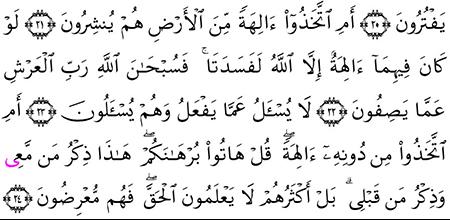 يَفْتُرُونَ ﴿٢٠﴾ أَمِ ٱتَّخَذُوٓا۟ ءَالِهَةً مِّنَ ٱلْأَرْضِ هُمْ يُنشِرُونَ ﴿٢١﴾ لَوْ
كَانَ فِيهِمَآ ءَالِهَةٌ إِلَّا ٱللَّهُ لَفَسَدَتَا ۚ فَسُبْحَـٰنَ ٱللَّهِ رَبِّ ٱلْعَرْشِ
عَمَّا يَصِفُونَ ﴿٢٢﴾ لَا يُسْـَٔلُ عَمَّا يَفْعَلُ وَهُمْ يُسْـَٔلُونَ ﴿٢٣﴾ أَمِ
ٱتَّخَذُوا۟ مِن دُونِهِۦٓ ءَالِهَةً ۖ قُلْ هَاتُوا۟ بُرْهَـٰنَكُمْ ۖ هَـٰذَا ذِكْرُ مَن مَّعِى
وَذِكْرُ مَن قَبْلِى ۗ بَلْ أَكْثَرُهُمْ لَا يَعْلَمُونَ ٱلْحَقَّ ۖ فَهُم مُّعْرِضُونَ ﴿٢٤﴾